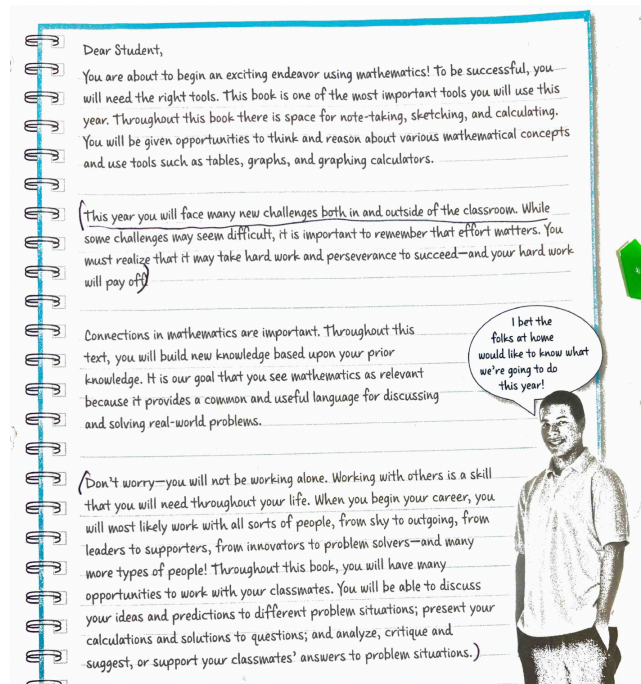 Dear Student,
You are about to begin an exciting endeavor using mathematics! To be successful, you
will need the right tools. This book is one of the most important tools you will use this
year. Throughout this book there is space for note-taking, sketching, and calculating.
You will be given opportunities to think and reason about various mathematical concepts
and use tools such as tables, graphs, and graphing calculators.
This year you will face many new challenges both in and outside of the classroom. While
some challenges may seem difficult, it is important to remember that effort matters. You
must realize that it may take hard work and perseverance to succeed—and your hard work
will pay off.
Connections in mathematics are important. Throughout this
text, you will build new knowledge based upon your prior
knowledge. It is our goal that you see mathematics as relevant
because it provides a common and useful language for discussing
and solving real-world problems.
I bet the
folks at home
would like to know what
we're going to do
this year!
Don't worry—you will not be working alone. Working with others is a skill
that you will need throughout your life. When you begin your career, you
will most likely work with all sorts of people, from shy to outgoing, from
leaders to supporters, from innovators to problem solvers—and many
more types of people! Throughout this book, you will have many
opportunities to work with your classmates. You will be able to discuss
your ideas and predictions to different problem situations; present your
calculations and solutions to questions; and analyze, critique and
suggest, or support your classmates' answers to problem situations.